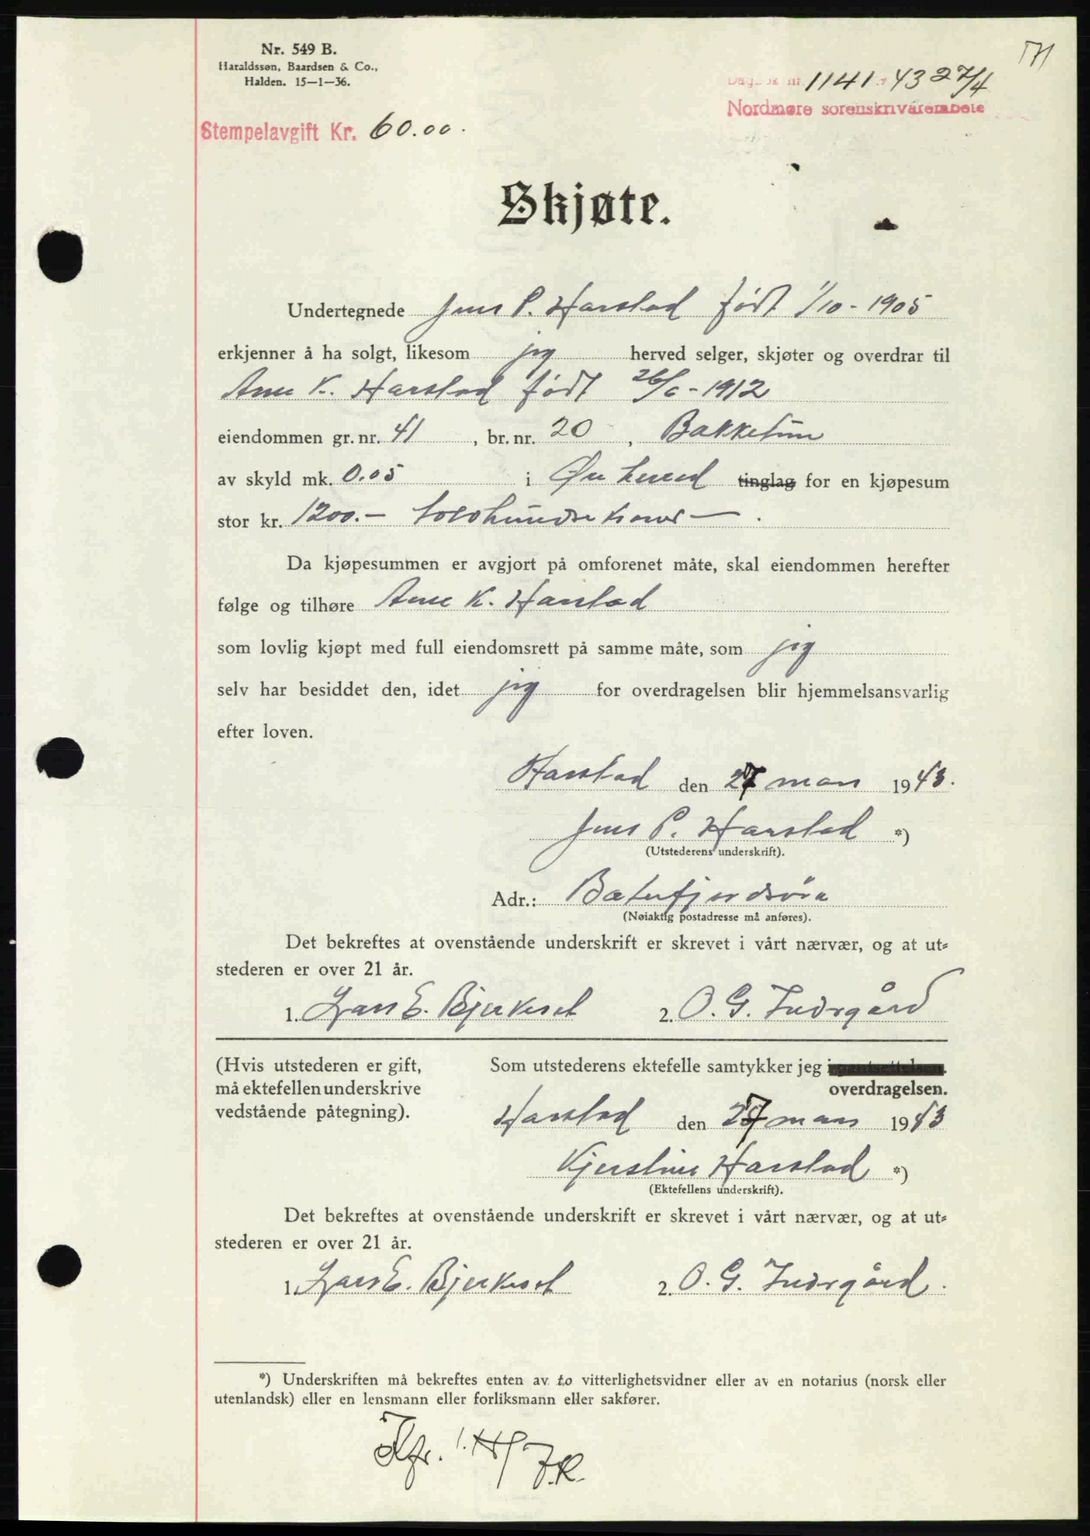 Nr. 549 B.
Haraldssøn, Baardsen & Co.,
Halden. 15—1—36.
71
Dagbok nr. 1141 43 27/4
Nordmøre sorenskriverembete
Stempelavgift Kr. 60.00.
Skjøte.
Undertegnede Jens P. Harstad født 1/10 - 1905
erkjenner å ha solgt, likesom jeg herved selger, skjøter og overdrar til
Arne K. Harstad født 26/6 - 1912
eiendommen gr. nr. 41, br. nr. 20, Bakketun
av skyld mk. 0.05 i Øre herred tinglag for en kjøpesum
stor kr. 1200.— tolvhundre kroner — .
Da kjøpesummen er avgjort på omforenet måte, skal eiendommen herefter
følge og tilhøre Arne K. Harstad
som lovlig kjøpt med full eiendomsrett på samme måte, som jeg
selv har besiddet den, idet jeg for overdragelsen blir hjemmelsansvarlig
efter loven.
Harstad den 27 mars 1943.
Jens P. Harstad *)
(Utstederens underskrift).
Adr.: Batnfjordsøra
(Nøiaktig postadresse må anføres).
Det bekreftes at ovenstående underskrift er skrevet i vårt nærvær, og at ut-
stederen er over 21 år.
1. Lars E. Bjerkeset 2. O. G. Indergård
(Hvis utstederen er gift, Som utstederens ektefelle samtykker jeg i pantsettelsen.
må ektefellen underskrive overdragelsen.
vedstående påtegning). Harstad den 27 mars 1943
Kjerstine Harstad *)
(Ektefellens underskrift).
Det bekreftes at ovenstående underskrift er skrevet i vårt nærvær, og at ut-
stederen er over 21 år.
1. Lars E. Bjerkeset 2. O. G. Indergård.
*) Underskriften må bekreftes enten av to vitterlighetsvidner eller av en notarius (norsk eller
utenlandsk) eller en lensmann eller forliksmann eller sakfører.